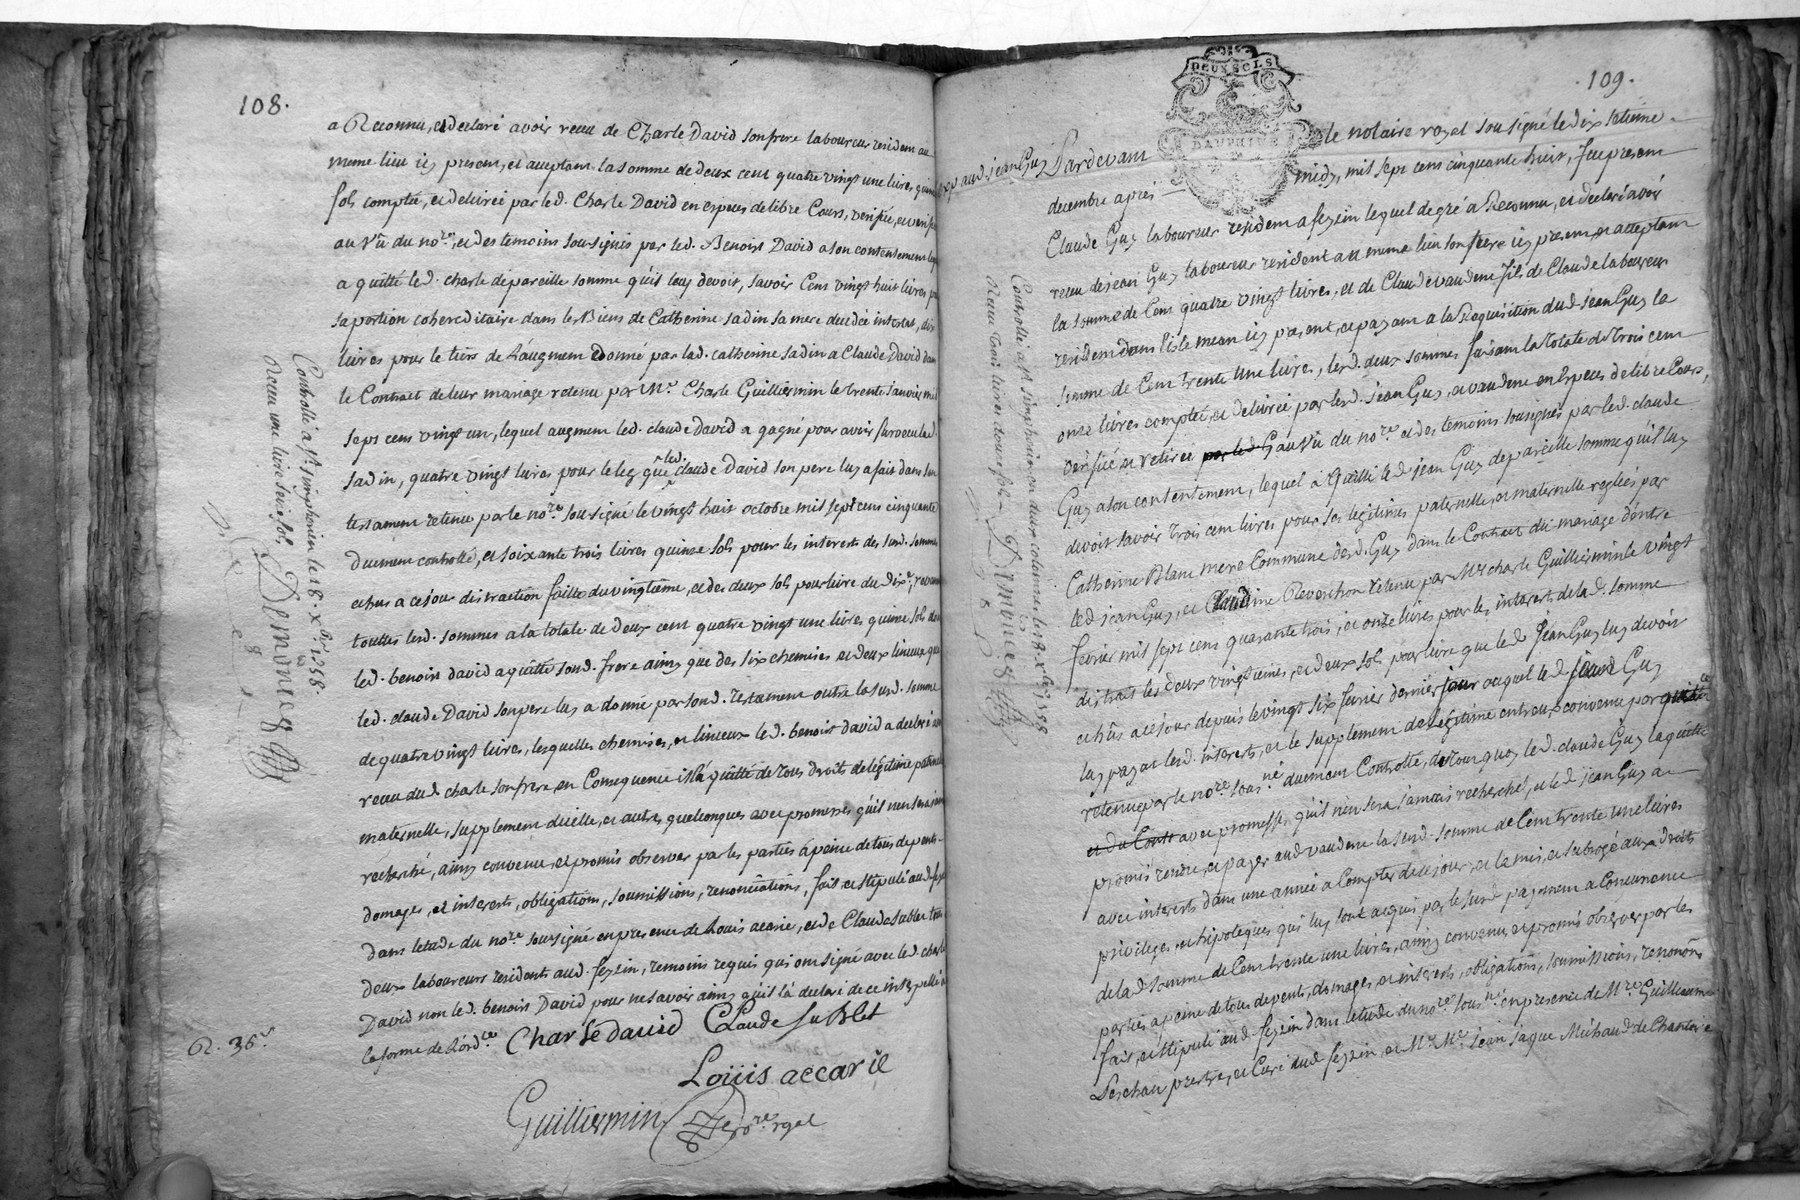 108.
a Reconnu, et declaré avoir receu de Charle David son frere laboureur resident au
meme lieu icy present, et acceptant la somme de deux cent quatre vingt une livres quinze
sols comptée, et delivrée par led. Charle David en especes de libre Cours, verifiée, et
au vû du nore. et des temoins soussignés par led. Benoist David a son contentement
a quitté led. charle de pareille somme qu'il luy devoit, savoir Cent vingt huit livres
sa portion cohereditaire dans les Biens de Catherine sadin sa mere decedée intestat, dix
livres pour le tiers de L'augment donné par lad. catherine sadin a Claude David dans
le Contract de leur mariage retenu par Me. Charle Guilliermin le trente Janvier mil
sept cens vingt un, lequel augment led. claude David a gagné pour avoir survecu lad.
sadin, quatre vingt livres pour le leg que led. claude David son pere luy a fait dans son
testament retenu par le nore. soussigné le vingt huit octobre mil sept cens cinquante
duement controllé, et soixante trois livres quinze sols pour les interests des sud. sommes
echus a ce jour distraction faille du vingtieme, et des deux sols pour livre du dixe.
touttes lesd. sommes a la totale de deux cent quatre vingt une livres quinze sols
led. benoist david a quitté sond. frere ainsy que des six chemises et deux linceux que
led. claude David son pere luy a donné par sond. testament outre la sud. somme
de quatre vingt livres, lesquelles chemises, et linceux led. benoist david a declaré avoir
receu dud. charle son frere, en Consequence il l'a quitté de tous droits de légitime paternelle
maternelle, supplement d'icelle, et autres quelconques avec promesse qu'il n'en sera jamais
recherché, ainsy convenu, et promis observer par les parties a peine de tous depents
domages, et interests, obligations, soumissions, renonciations, fait et stipulé aud. fezin
dans letude du nore. soussigné en presence de Louis acarie, et de Claude sublet tous
deux laboureurs residents aud. fezin, temoins requis qui ont signé avec led. charle
David non led. benoist David pour ne savoir ainsy qu'il l'a declaré de ce interpellé
la forme de l'ordce.
Charle david Claude Sublet
Louis accarie
Guilliermin nore. royal
R. 36s.
Controllé a St. simphorien le 18. Xbre 1758.
Receu une livre seize sols
Demones
109.
DEUX SOLS
DAUPHINÉ
exp. aud. jean Guy
Pardevant le notaire royal soussigné le dix setieme
decembre après midy, mil sept cens cinquante huit, fut present
Claude Guy laboureur resident a fezin lequel de gré a Reconnu, et declaré avoir
receu de jean Guy laboureur resident au meme lieu son frere icy present et acceptant
la somme de Cent quatre vingt livres, et de Claude vaudene fils de Claude laboureur
resident dans l'isle mean icy present, et payant a la Requisition dud. jean Guy la
somme de Cent trente une livres, lesd. deux sommes faisant la totale de Trois cent
onze livres comptée, et delivrée par lesd. jean Guy, et vaudene en Especes de libre Cours,
verifiée et retirée par led. G au vû du nore. et des temoins soussignés par led. claude
Guy a son contentement, lequel a Quitté led. jean Guy de pareille somme qu'il luy
devoit savoir Trois cent livres pour ses legitimes paternelle, et maternelle reglées par
Catherine Blanc mere Commune desd. Guy dans le Contract du mariage d'entre
led. jean Guy, et Claudine Revorchon retenu par Me charle Guilliermin le vingt
fevrier mil sept cens quarante trois, et onze livres pour les interests de lad. somme
distrait les deux vingtiemes, et deux sols pour livre que led. Jean Guy luy devoit
echûs a ce jour depuis le vingt six fevrier dernier jour auquel led. jean Guy
luy paya lesd. interests, et le supplement de legitime entreux convenu par quittce
retenue par le nore. sousné. duement Controlté, de tout quoy led. claude Guy la quitté
et du Cont avec promesse qu'il n'en sera jamais recherché, et led. jean Guy a
promis rendre, et payer aud. vaudene la susd. somme de Cent trente une livres
avec interests dans une année a Compter de ce jour, et la mis, et subrogé aux droits
privileges, et hipoteques qui luy sont acquis par le susd. payement a Concurrence
de lad. somme de Cent trente une livres, ainsy convenu, et promis observer par les
parties a peine de tous depents, domages, et interests, obligations, soumissions, renonons.
fait, et stipulé aud. fezin dans letude du nore. sousné. en presence de Mre. Guilleaume
Deschau prestre, et Curé dud. fezin et Me. Me. jean jaque Michaud de
Controllé a St. simphorien on due colonnes le 18. Xbre 1758
Receu trois livres douze sols
Demones